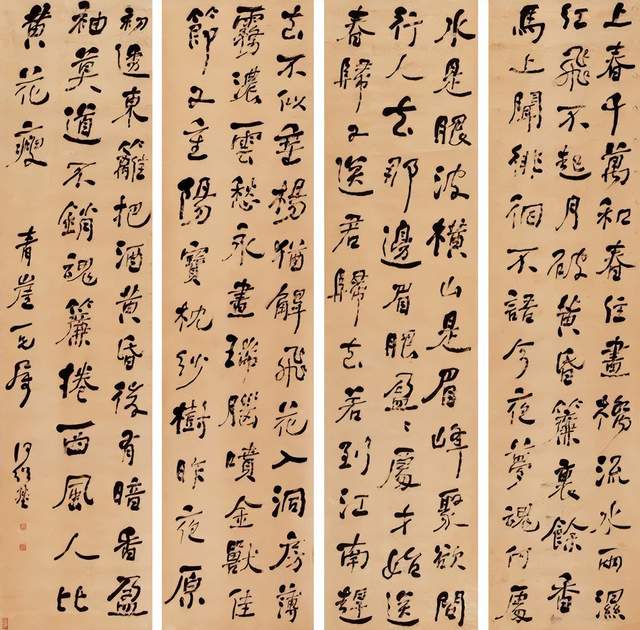 上春千萬和春住畫橋流水雨濕
紅飛不起月破黃昏簾裏餘香
馬上聞徘徊不語今夜夢魂何處
水是眼波橫山是眉峰聚欲問
行人去那邊眉眼盈盈處才始送
春歸又送君歸去若到江南趕
去不似垂楊猶解飛花入洞房薄
霧濃雲愁永晝瑞腦噴金獸佳
節又重陽寶枕紗樹昨夜原
初透東籬把酒黃昏後有暗香盈
袖莫道不銷魂簾捲西風人比
黃花瘦
青崖兄屬
何紹基